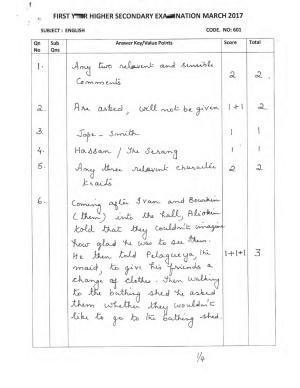 1
FIRST YEAR HIGHER SECONDARY EXAMINATION MARCH 2017
SUBJECT : ENGLISH CODE. NO: 601
Qn No Sub Qns Answer Key/Value Points Score Total
1. Any two relevent and sensible
Comments 2 2
2 Are asked, will not be given 1+1 2
3 Jope - Smith 1 1
4. Hassan / The Serang 1 1
5. Any three relevent character
traits 2 2
6. Coming after Ivan and Bourkin
(them) into the hall, Aliohin
told that they couldn't imagine
how glad he was to see them.
He then told Pelagueya, the
maid, to give his friends a
change of clothes. Then walking
to the bathing shed he asked
them whether they wouldn't
like to go to the bathing shed. 1+1+1 3
1/4